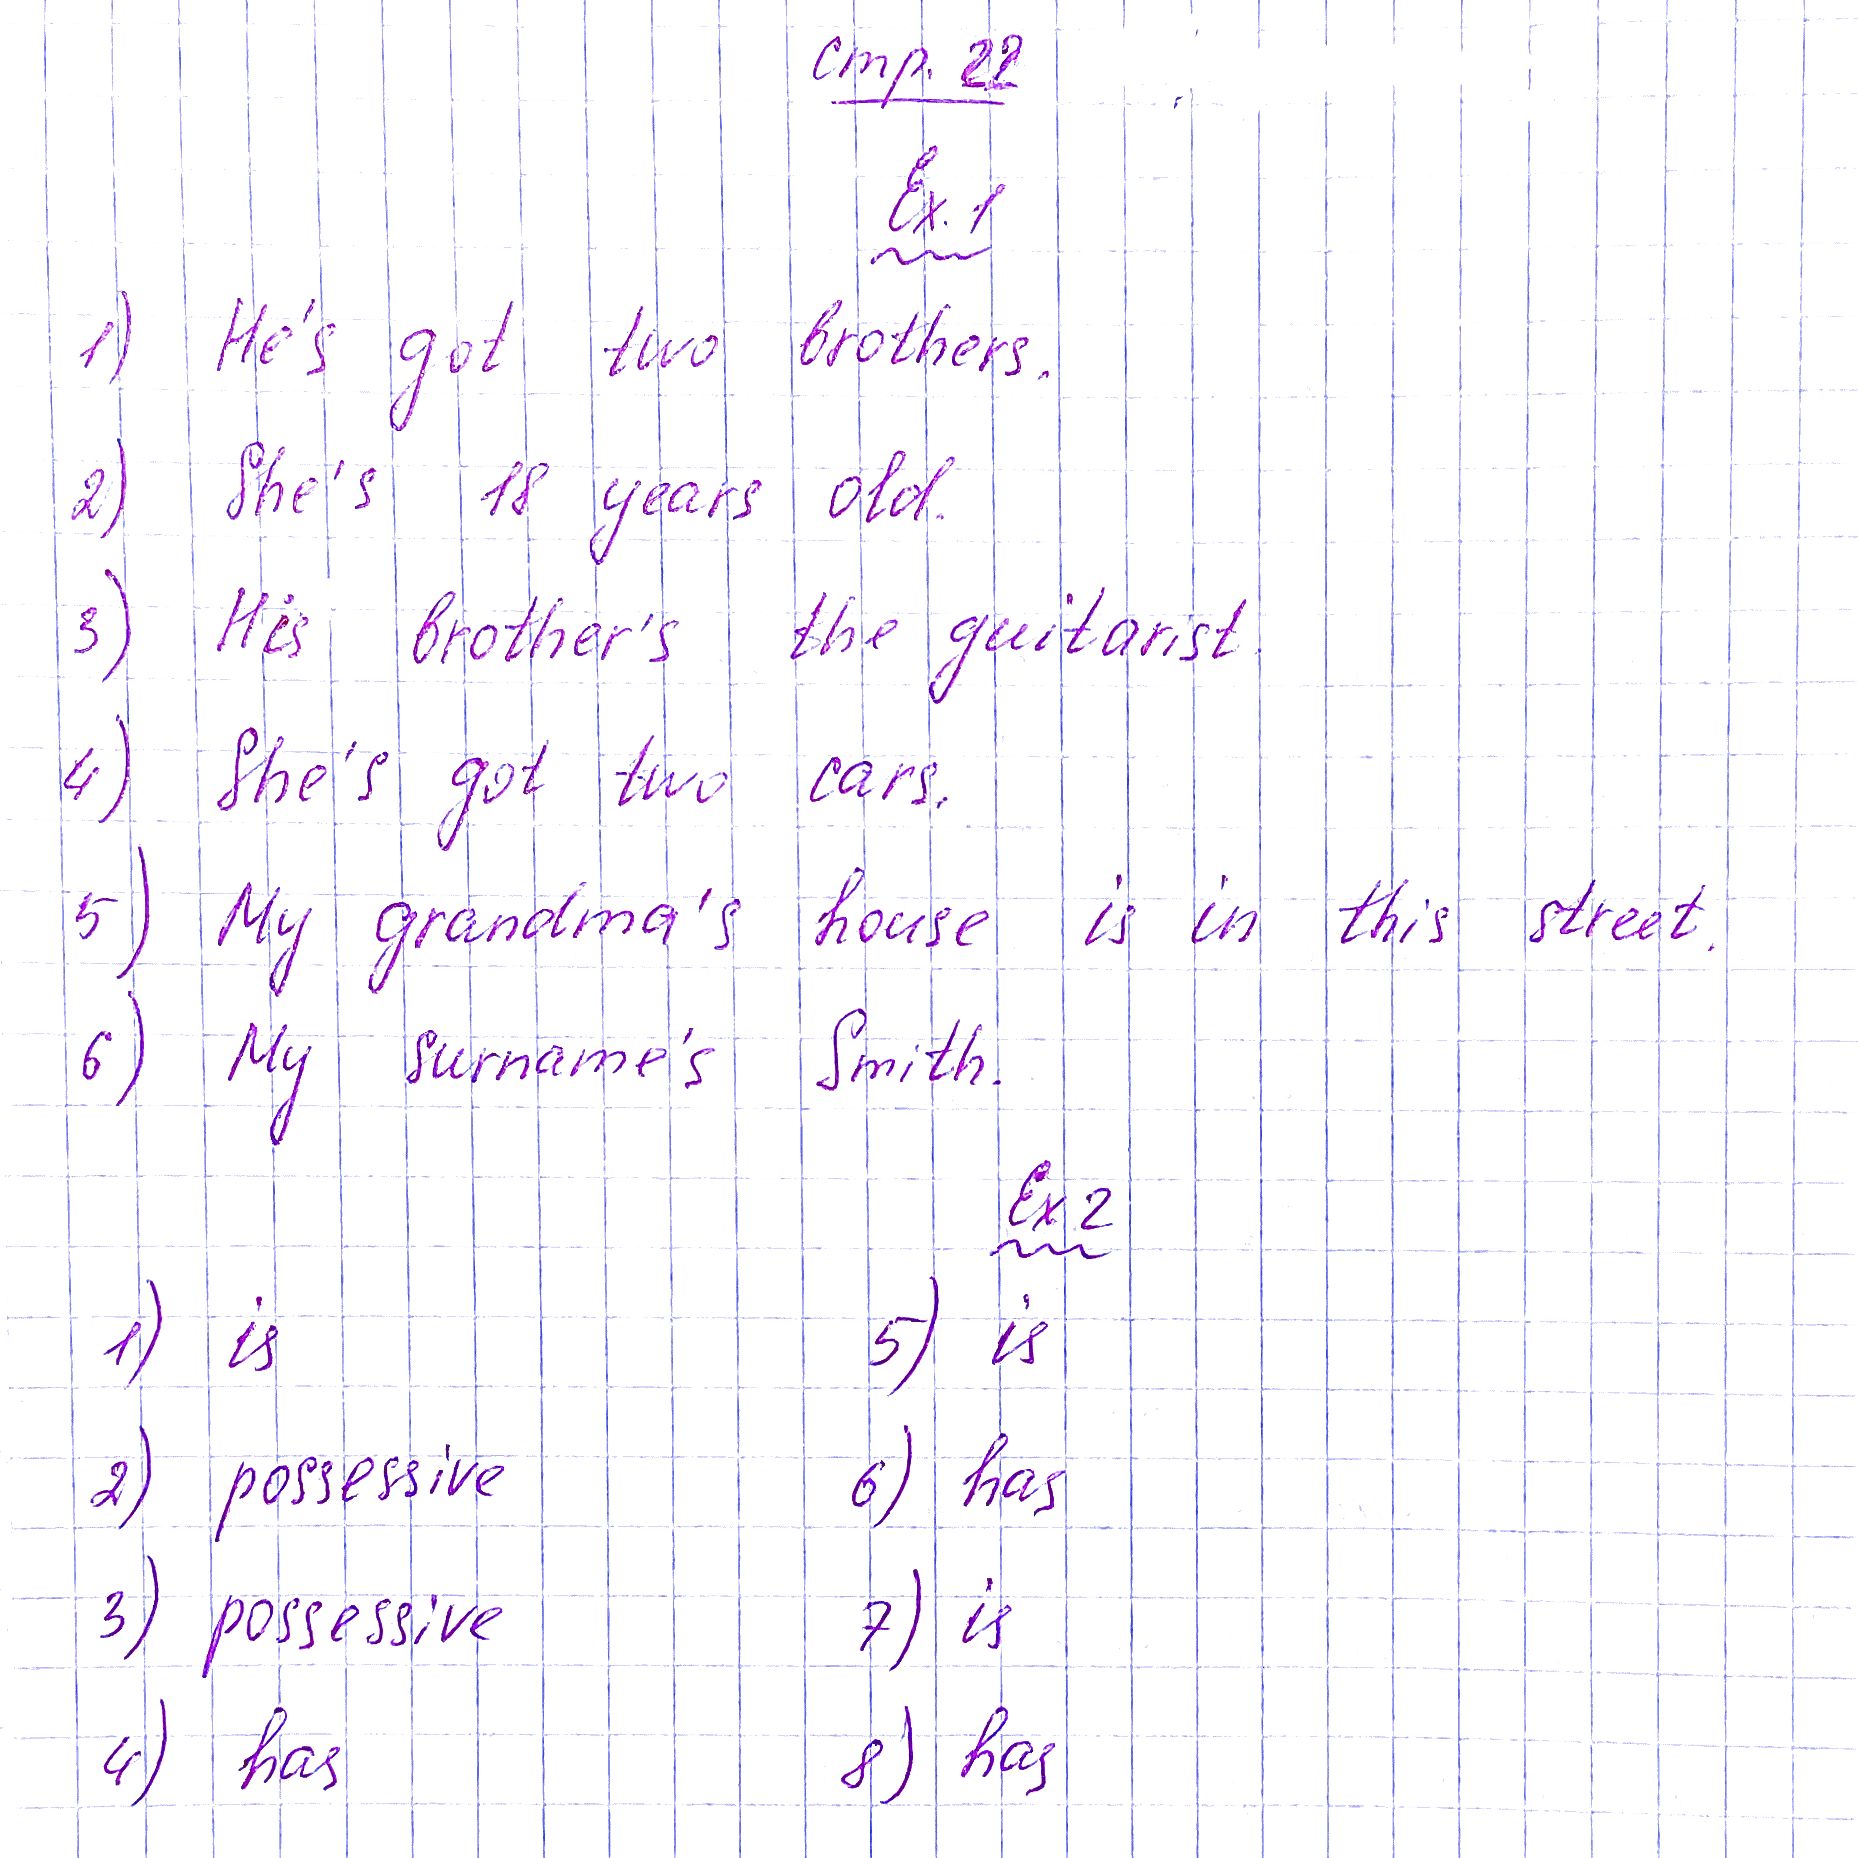 стр. 22
Ex. 1
1) He's got two brothers.
2) She's 18 years old.
3) His brother's the guitarist.
4) She's got two cars.
5) My grandma's house is in this street.
6) My surname's Smith.
Ex 2
1) is 5) is
2) possessive 6) has
3) possessive 7) is
4) has 8) has